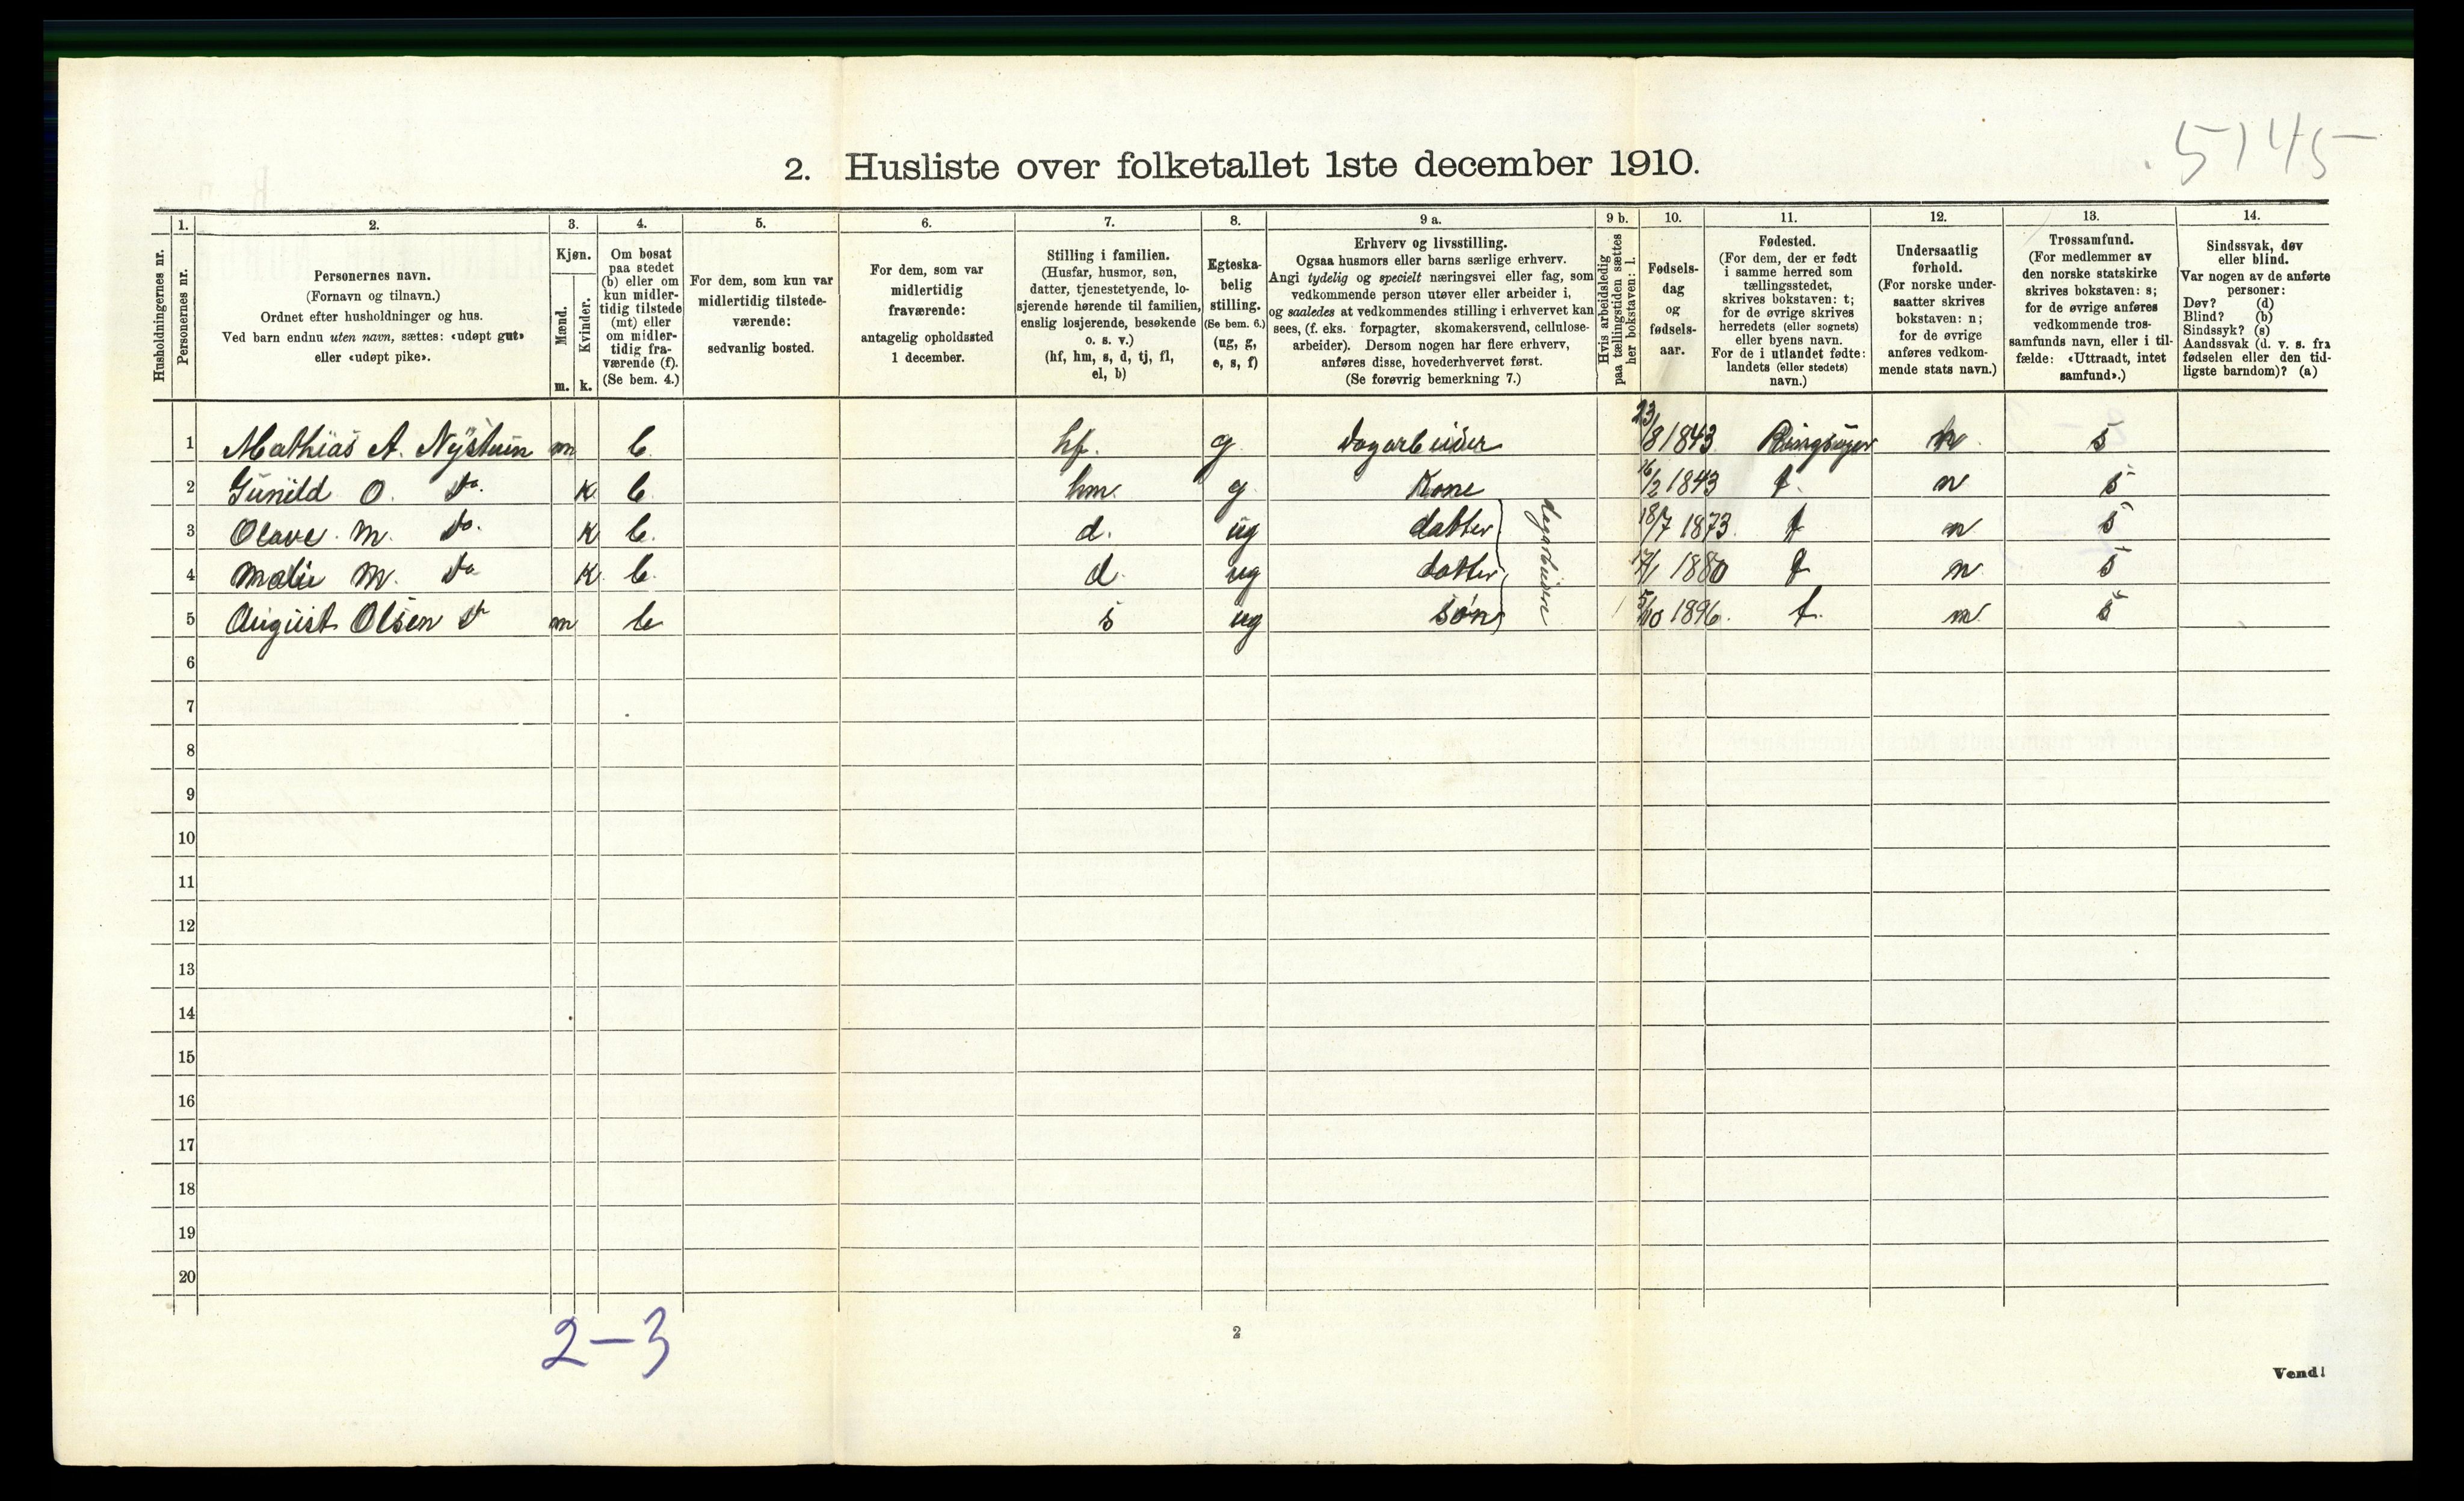 5145
2. Husliste over folketallet 1ste december 1910.
Husholdningernes nr.
1. Personernes nr.
2. Personernes navn.
(Fornavn og tilnavn.)
Ordnet efter husholdninger og hus.
Ved barn endnu uten navn, sættes: «udøpt gut»
eller «udøpt pike».
3. Kjøn.
Mænd. m.
Kvinder. k.
4. Om bosat
paa stedet
(b) eller om
kun midler-
tidig tilstede
(mt) eller
om midler-
tidig fra-
værende (f).
(Se bem. 4.)
5. For dem, som kun var
midlertidig tilstede-
værende:
sedvanlig bosted.
6. For dem, som var
midlertidig
fraværende:
antagelig opholdssted
1 december.
7. Stilling i familien.
(Husfar, husmor, søn,
datter, tjenestetyende, lo-
sjerende hørende til familien,
enslig losjerende, besøkende
o. s. v.)
(hf, hm, s, d, tj, fl,
el, b)
8. Egteska-
belig
stilling.
(Se bem. 6.)
(ug, g,
e, s, f)
9 a. Erhverv og livsstilling.
Ogsaa husmors eller barns særlige erhverv.
Angi tydelig og specielt næringsvei eller fag, som
vedkommende person utøver eller arbeider i,
og saaledes at vedkommendes stilling i erhvervet kan
sees, (f. eks. forpagter, skomakersvend, cellulose-
arbeider). Dersom nogen har flere erhverv,
anføres disse, hovederhvervet først.
(Se forøvrig bemerkning 7.)
9 b. Hvis arbeidsledig
paa tællingstiden sættes
her bokstaven: l.
10. Fødsels-
dag
og
fødsels-
aar.
11. Fødested.
(For dem, der er født
i samme herred som
tællingsstedet,
skrives bokstaven: t;
for de øvrige skrives
herredets (eller sognets)
eller byens navn.
For de i utlandet fødte:
landets (eller stedets)
navn.)
12. Undersaatlig
forhold.
(For norske under-
saatter skrives
bokstaven: n;
for de øvrige
anføres vedkom-
mende stats navn.)
13. Trossamfund.
(For medlemmer av
den norske statskirke
skrives bokstaven: s;
for de øvrige anføres
vedkommende tros-
samfunds navn, eller i til-
fælde: «Uttraadt, intet
samfund».)
14. Sindssvak, døv
eller blind.
Var nogen av de anførte
personer:
Døv? (d)
Blind? (b)
Sindssyk? (s)
Aandssvak (d. v. s. fra
fødselen eller den tid-
ligste barndom)? (a)
1 Mathias A. Nystuen m b hf. g dagarbeider 23/8 1843 Ringsager n s
2 Gunild O. Do. k b hm. g Kone 16/2 1843 t. n s
3 Olave M. Do. k b. d. ug datter 18/7 1873 t n s
4 Malie M. Do k b. d. ug datter 1880 t n s
5 August Olsen m b s ug søn 5/10 1896. t. n s
6
7
8
9
10
11
12
13
14
15
16
17
18
19
20
2-3
2
Vend!